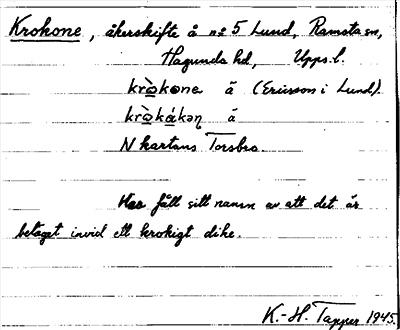 Krokone, åkerskifte å nº 5 Lund, Ramsta sn,
Hagunda hd, Upps. l.
kròkone ä (Ericsson i Lund).
kròkákəɳ ä
N kartans Torsbro.
Har fått sitt namn av att det är
beläget invid ett krokigt dike.
K.-H. Tapper 1945.